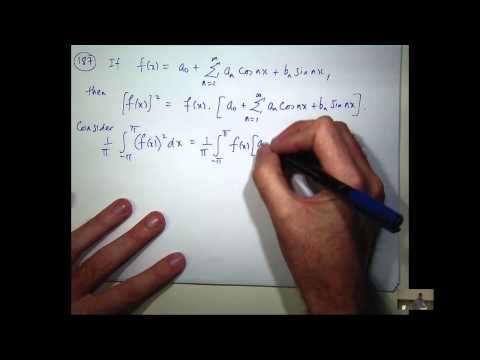 (187) If f(x) = a₀ + ∞∑n=1 aₙ cos nx + bₙ sin nx,
then [f(x)]² = f(x) . [a₀ + ∞∑n=1 aₙ cos nx + bₙ sin nx].
Consider
1/π ∫-π^π (f(x))² dx = 1/π ∫-π^π f(x) [a